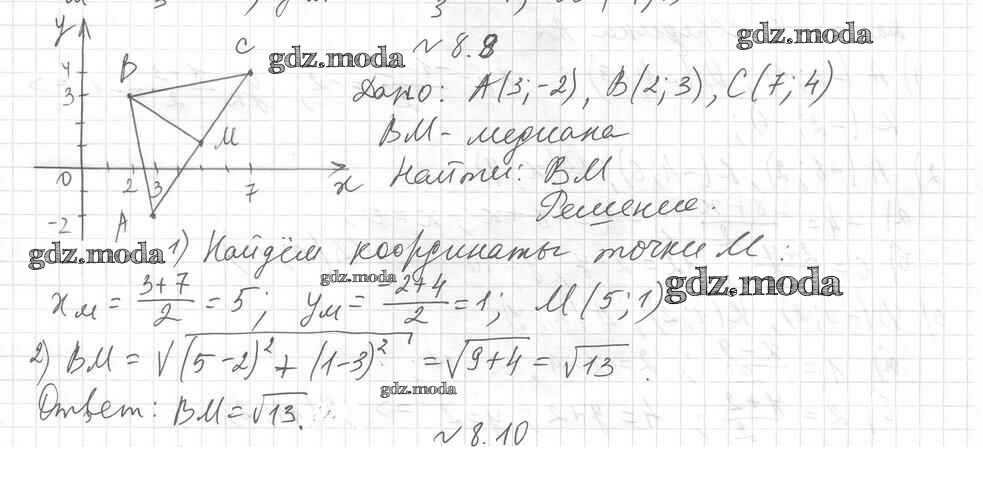 y
C
№ 8.8
gdz.moda
gdz.moda
B
4
3
Дано: A(3;-2), B(2;3), C(7;4)
M
BM - медиана
0 2 3 7 x
Найти: BM
-2 A
Решение.
gdz.moda
1) Найдём координаты точки M:
gdz.moda
gdz.moda
x_M = (3+7)/2 = 5; y_M = (-2+4)/2 = 1; M(5;1)
2) BM = √((5-2)²+(1-3)²) = √(9+4) = √13.
gdz.moda
Ответ: BM = √13.
№ 8.10